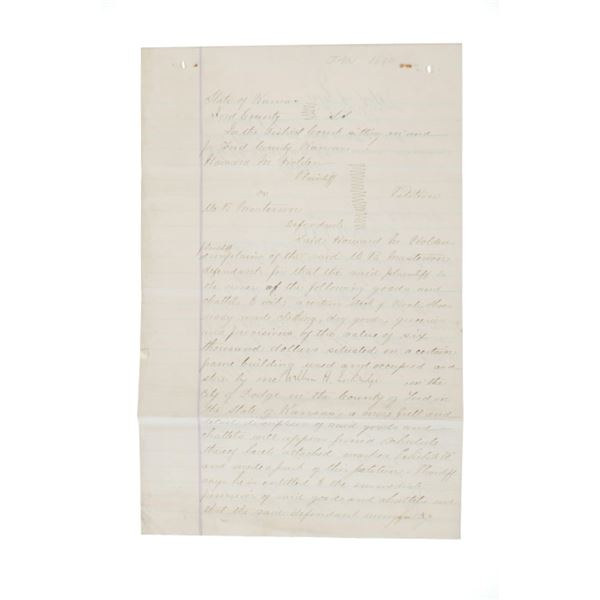 No 1690
State of Kansas
Ford County SS
In the District Court sitting in and
for Ford County Kansas
Howard M Holden
Plaintiff
vs Petition
W B Masterson
Defendant
Said Howard M Holden
plaintiff
complains of the said W B Masterson
defendant for that the said plaintiff is
the owner of the following goods and
chattels to wit; a certain stock of Boots, Shoes
ready made clothing, dry goods, groceries
and provisions of the value of six
thousand dollars situated in a certain
frame building used and occupied as a
store by one H. in the
City of Dodge in the County of Ford in
the State of Kansas, a more full and
description of said goods and
chattels will appear from a schedule
thereof hereto attached marked Exhibit "A"
and made a part of this petition. Plaintiff
says he is entitled to the immediate
possession of said goods and chattels and
that the said defendant